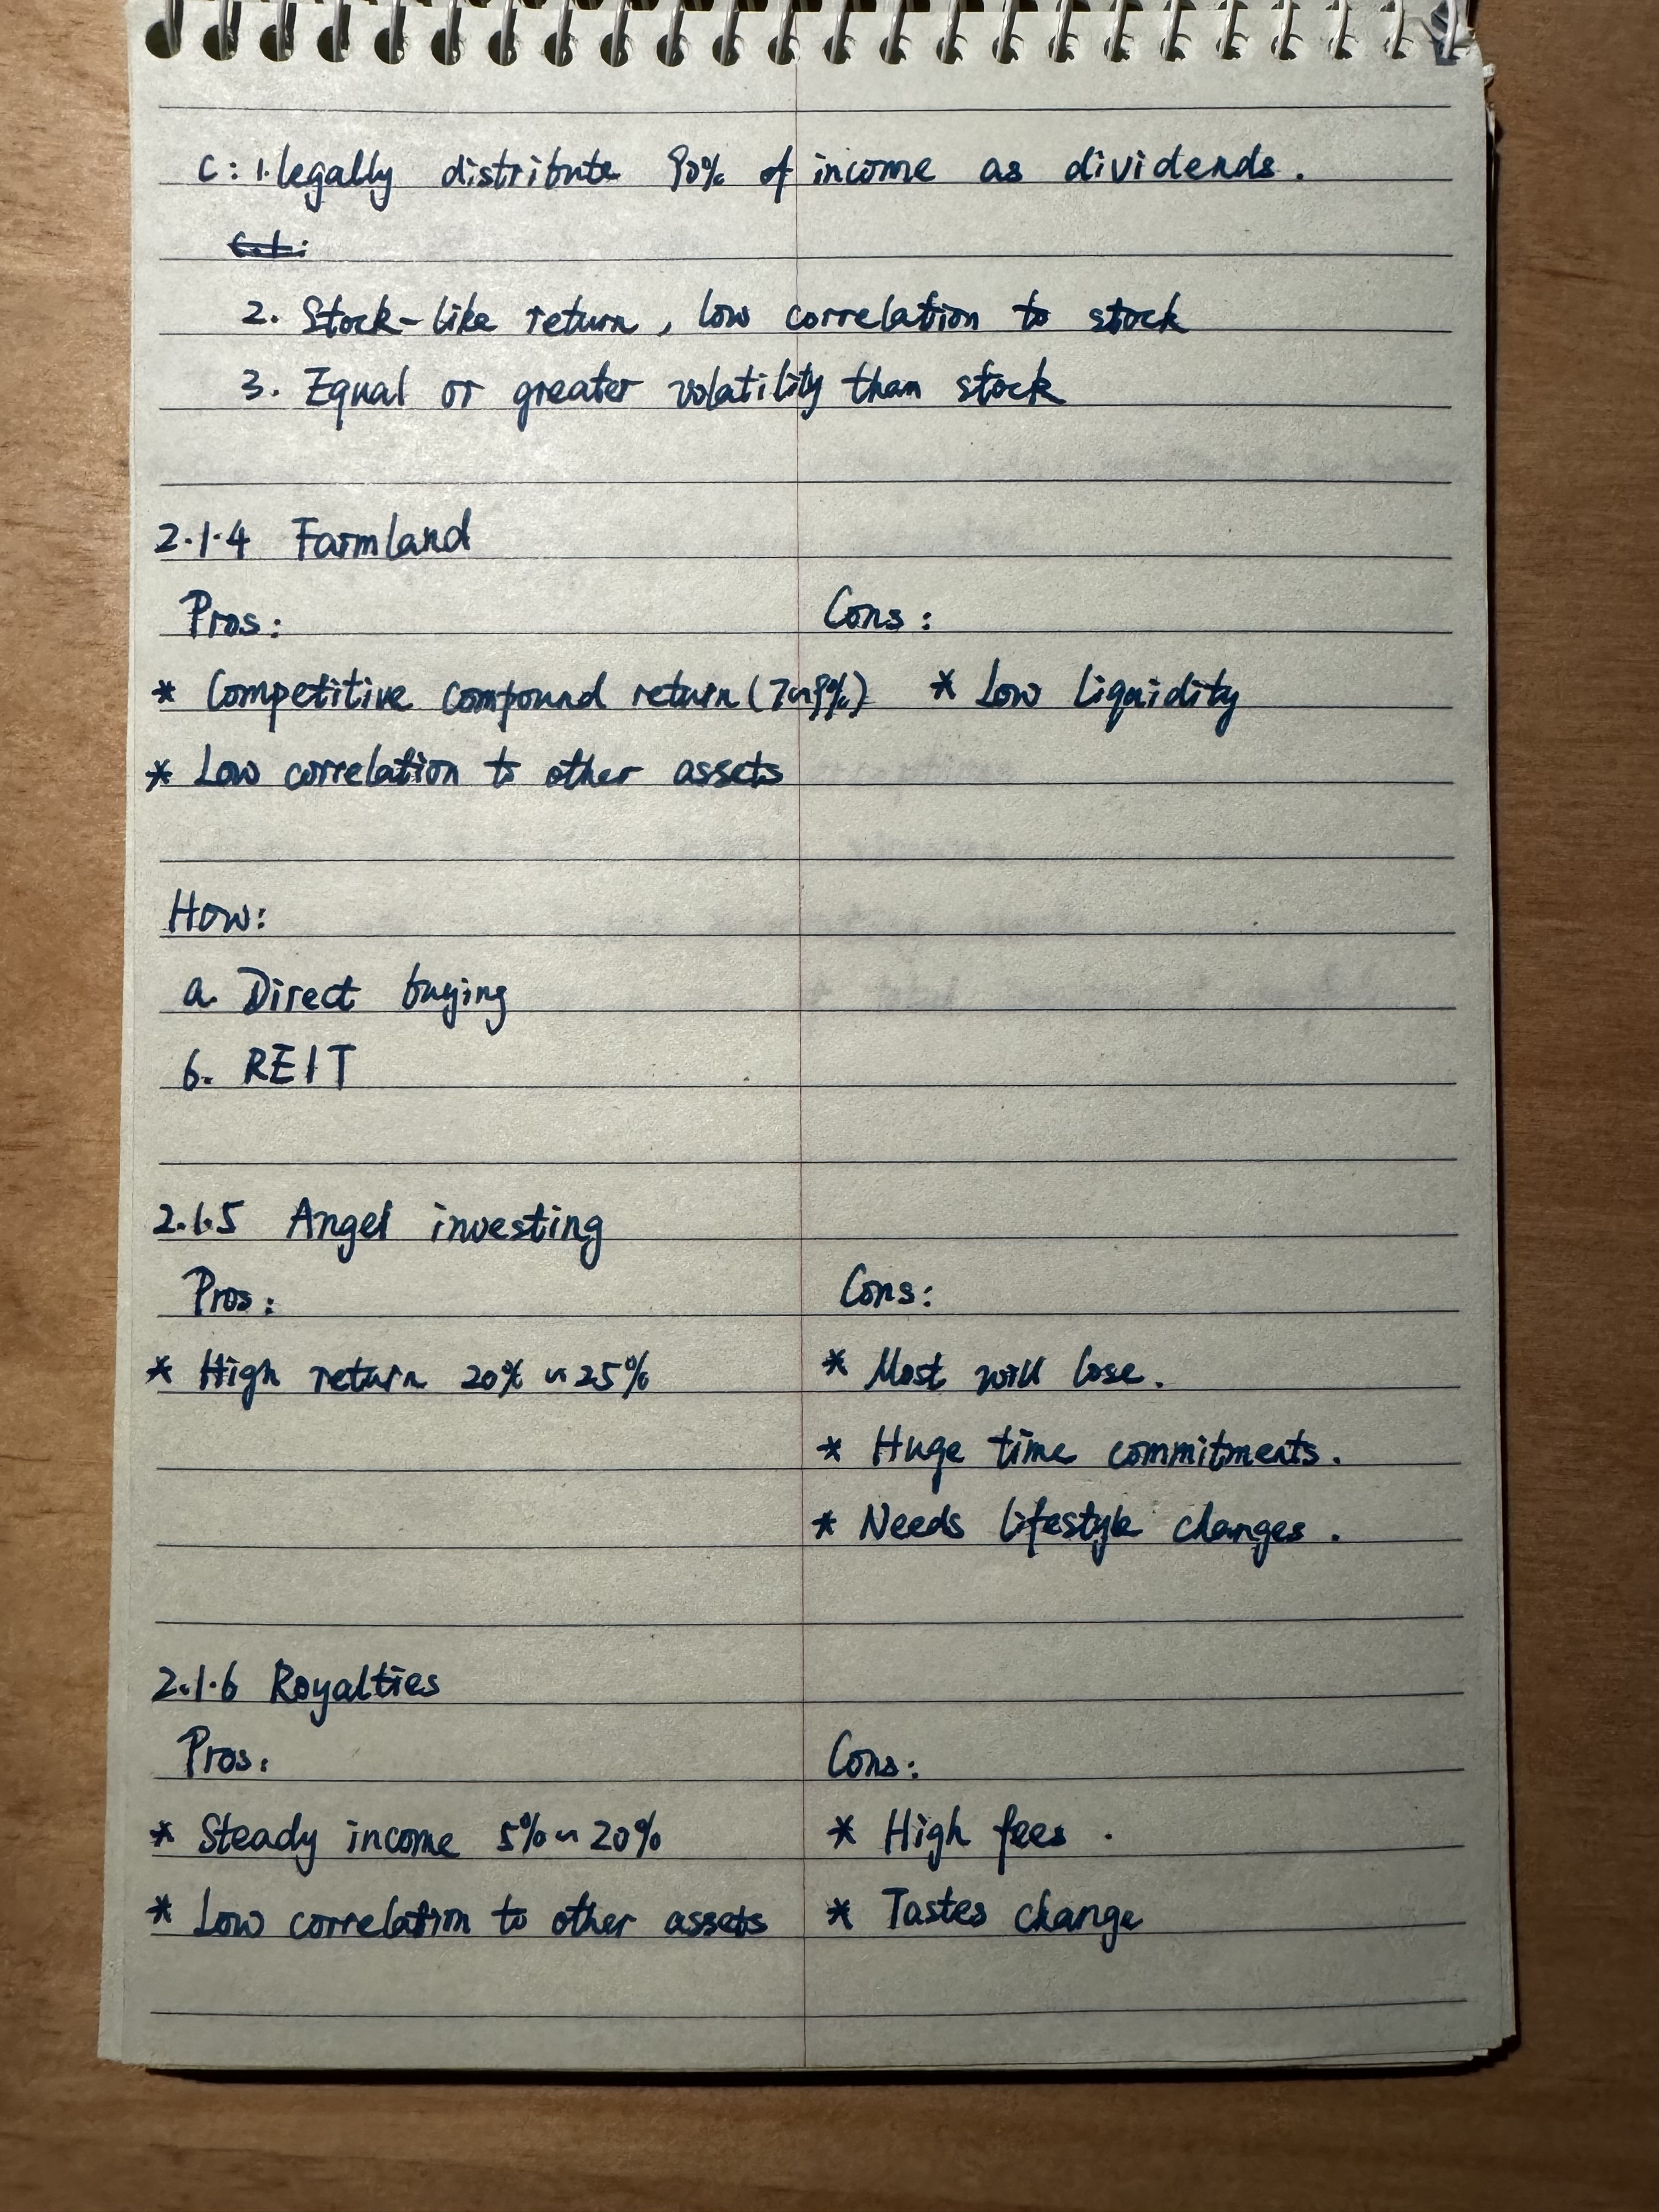 C: 1. legally distribute 90% of income as dividends.
C.1:
2. Stock-like return, low correlation to stock
3. Equal or greater volatility than stock
2.1.4 Farmland
Pros: Cons:
* Competitive compound return (7~9%) * Low liquidity
* Low correlation to other assets
How:
a. Direct buying
b. REIT
2.1.5 Angel investing
Pros: Cons:
* High return 20% ~ 25% * Most will lose.
* Huge time commitments.
* Needs lifestyle changes.
2.1.6 Royalties
Pros: Cons:
* Steady income 5% ~ 20% * High fees.
* Low correlation to other assets * Tastes change